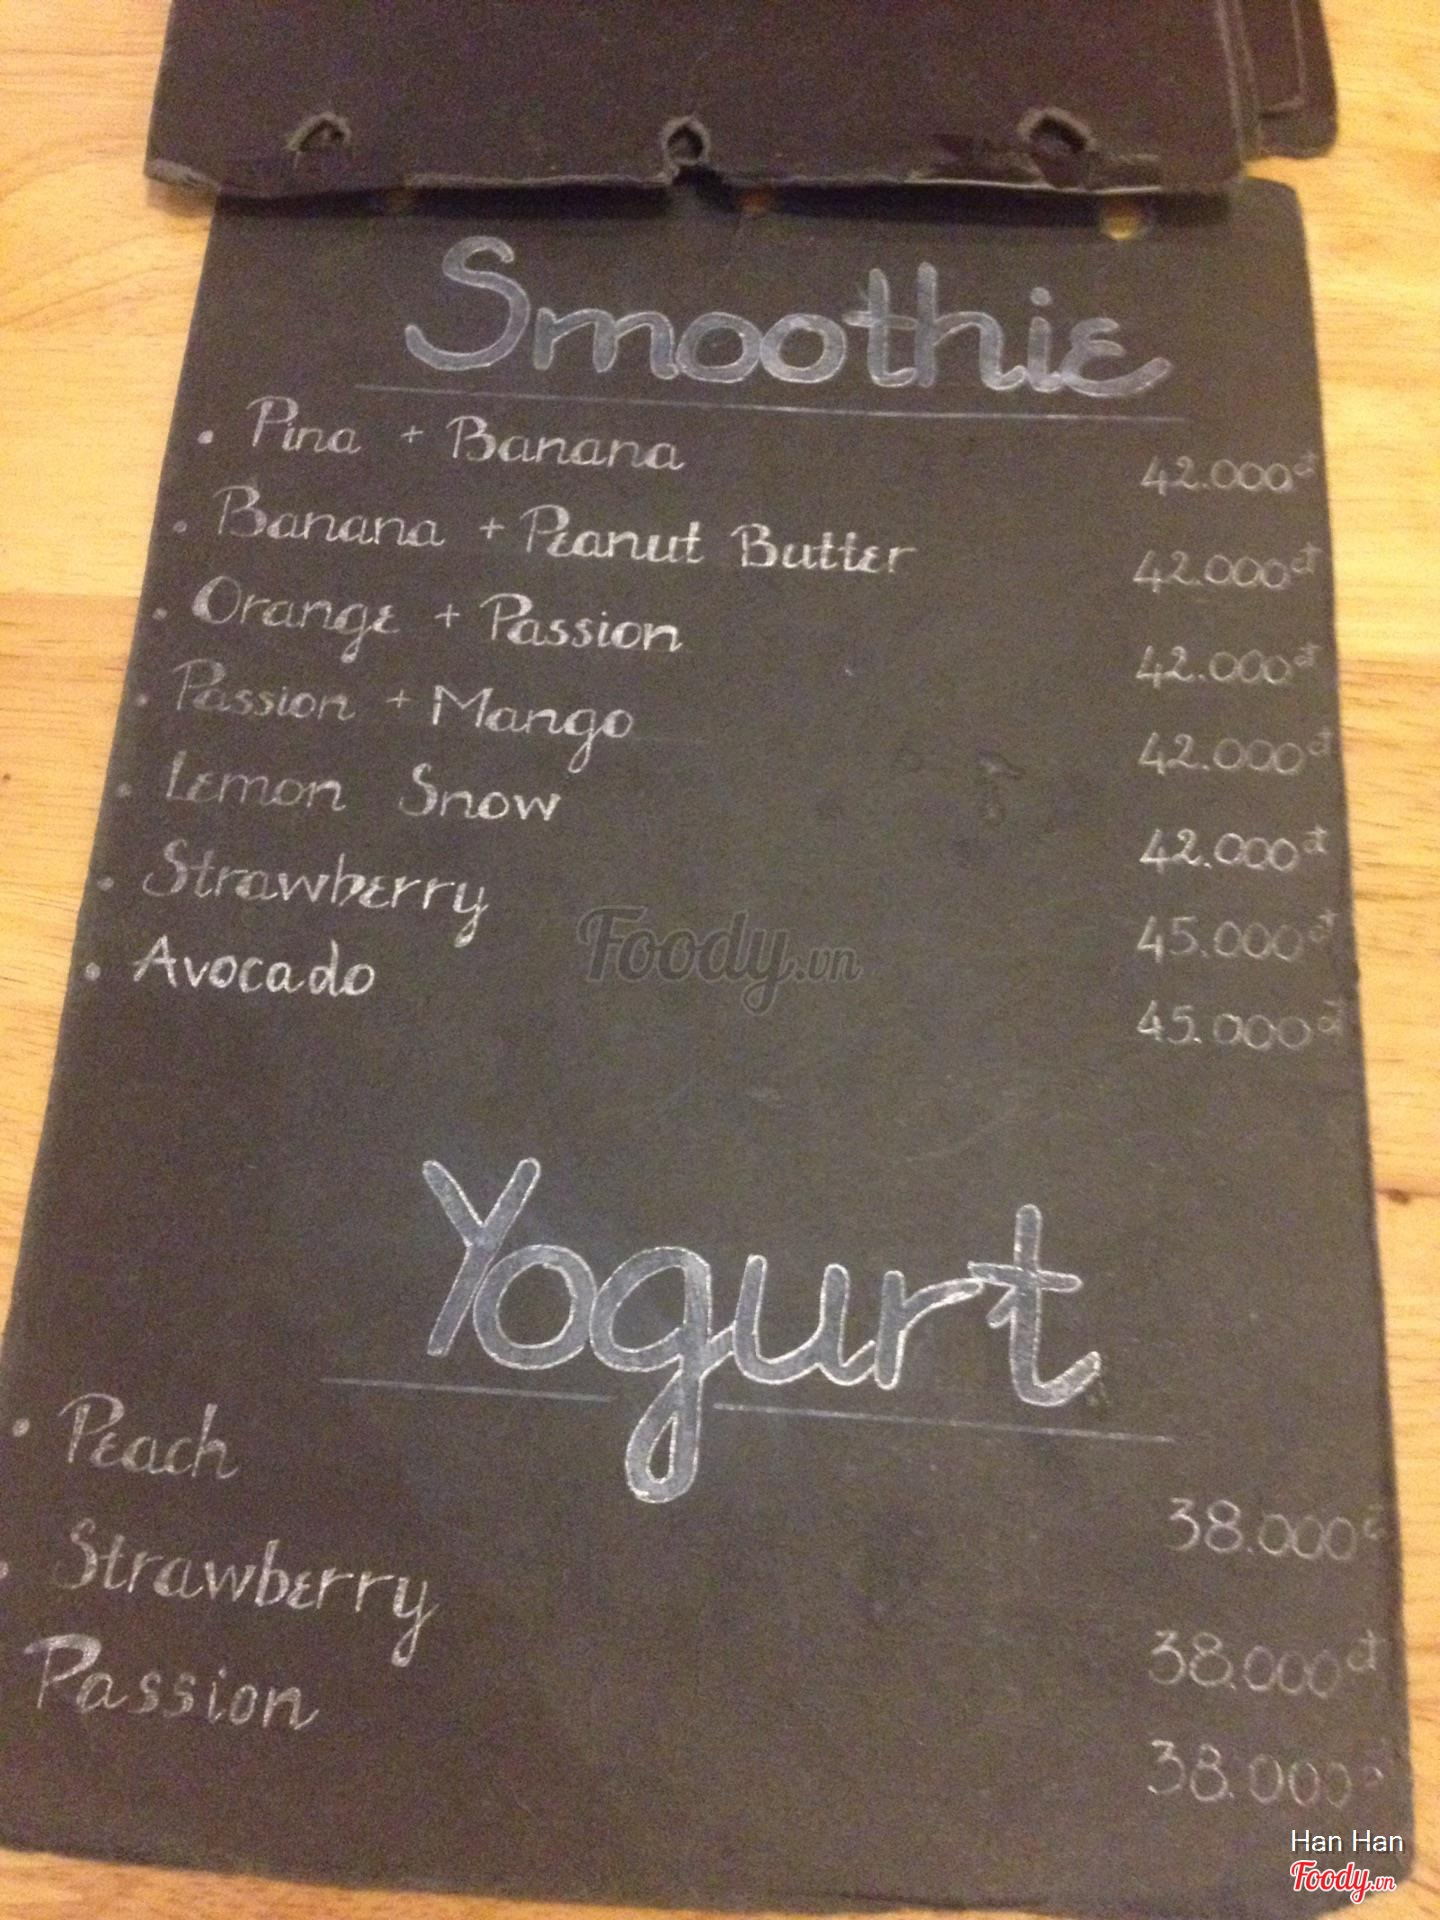 Smoothie
• Pina + Banana 42.000đ
• Banana + Peanut Butter 42.000đ
• Orange + Passion 42.000đ
• Passion + Mango 42.000đ
• Lemon Snow 42.000đ
• Strawberry 45.000đ
• Avocado 45.000đ
Foody.vn
Yogurt
• Peach 38.000đ
• Strawberry 38.000đ
Passion 38.000đ
Han Han
Foody.vn